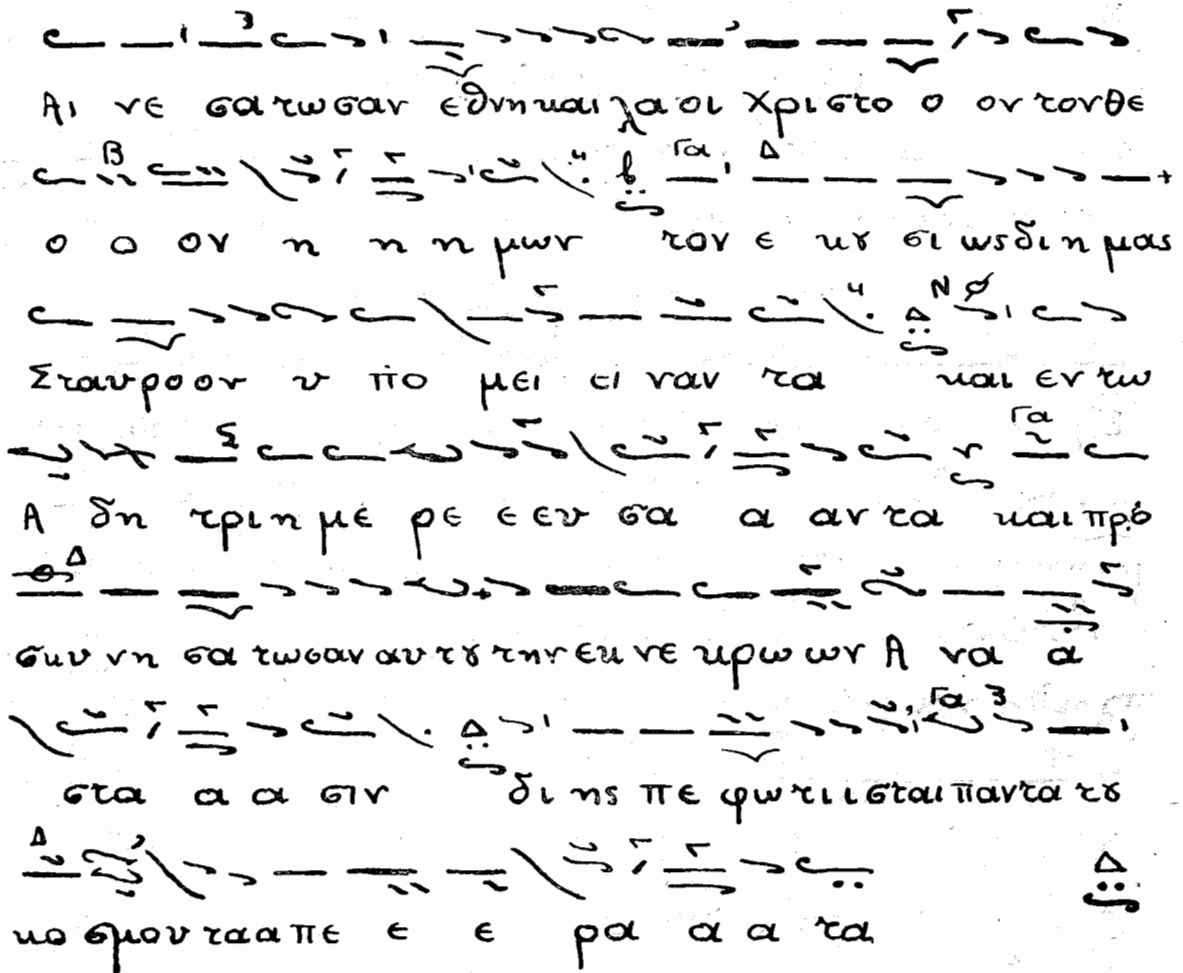 Αι νε σατωσαν εθνη και λα οι Χριστο ο ον τον θε
ο ο ον η η η μων τον ε κȣ σι ως δι η μας
Σταυρο ον υ πο μει ει ναν τα και εν τω
Α δη τριη με ρε ε ευ σα α αν τα και προ
σκυ νη σα τωσαν αυτȣ την εκ νε κρω ων Α να α
στα α α σιν δι ης πε φωτι ι σται παντα τȣ
κο σμου τα α πε ε ε ρα α α τα